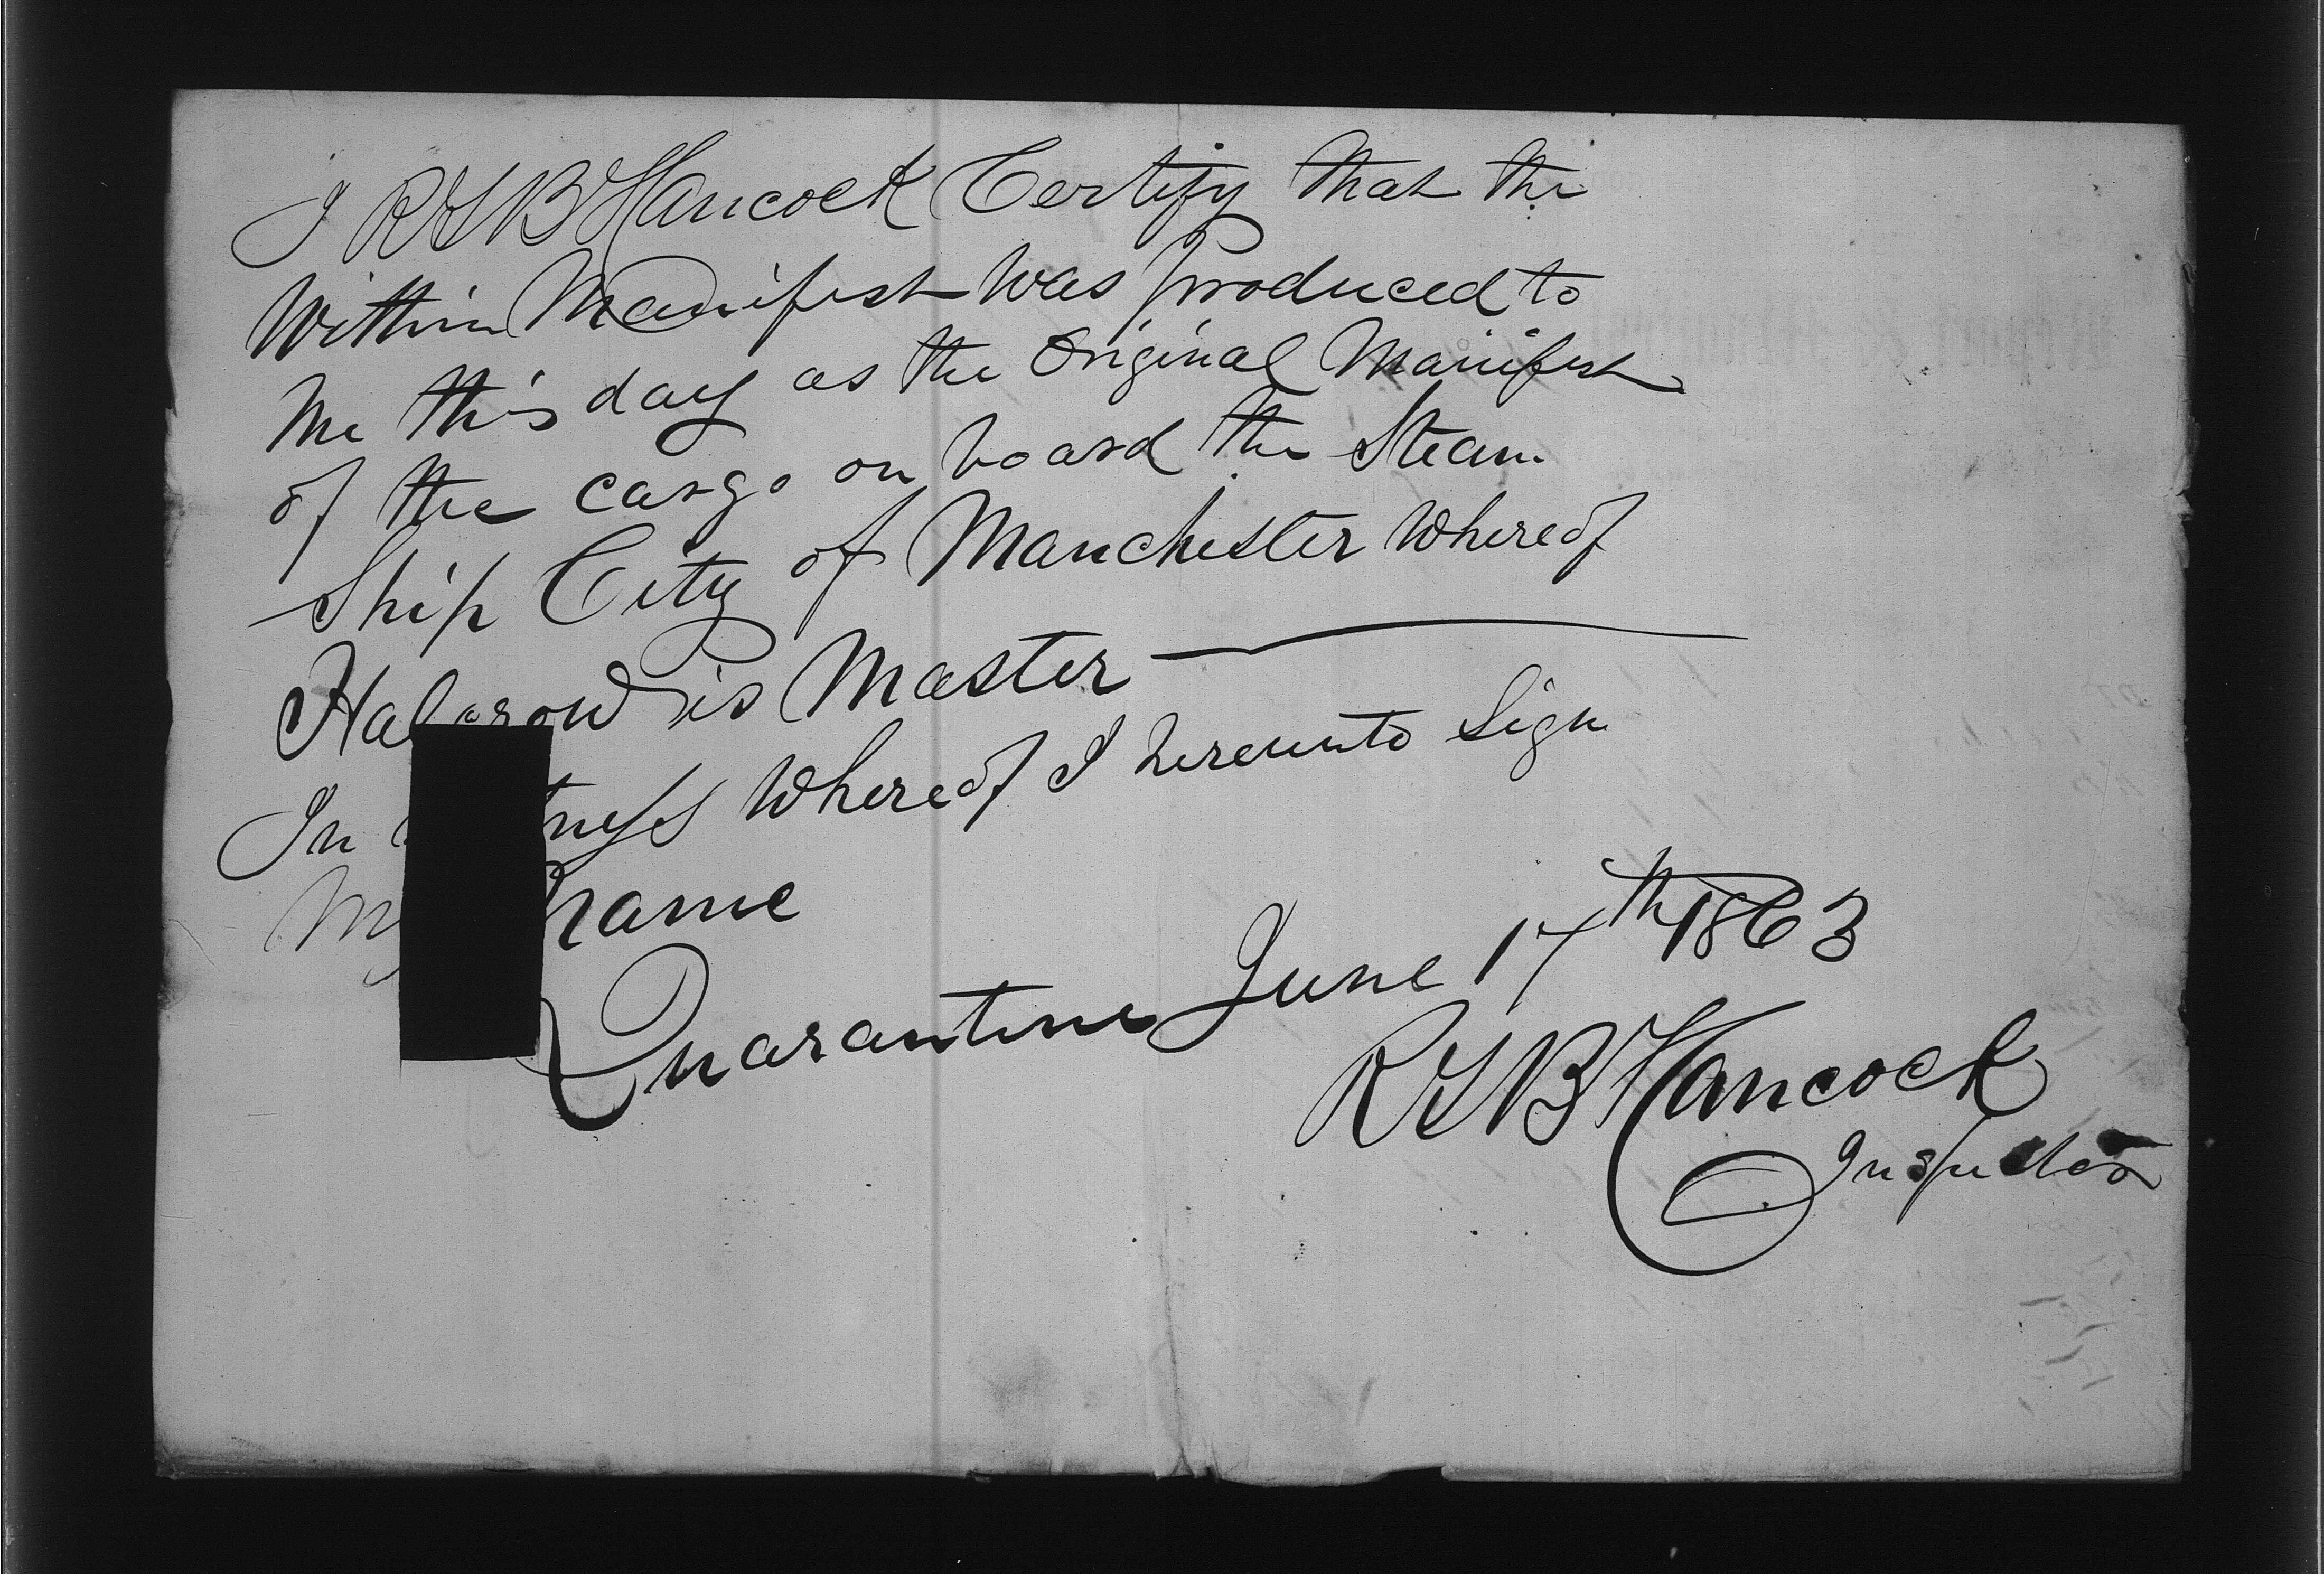 I R S B Hancock Certify that the
Within Manifest was produced to
Me this day as the Original Manifest
of the cargo on board the Steam
Ship City of Manchester whereof
Halcrow is Master
In whereof I hereunto Sign
My name
Quarantine June 17th 1863
R S B Hancock
Inspector